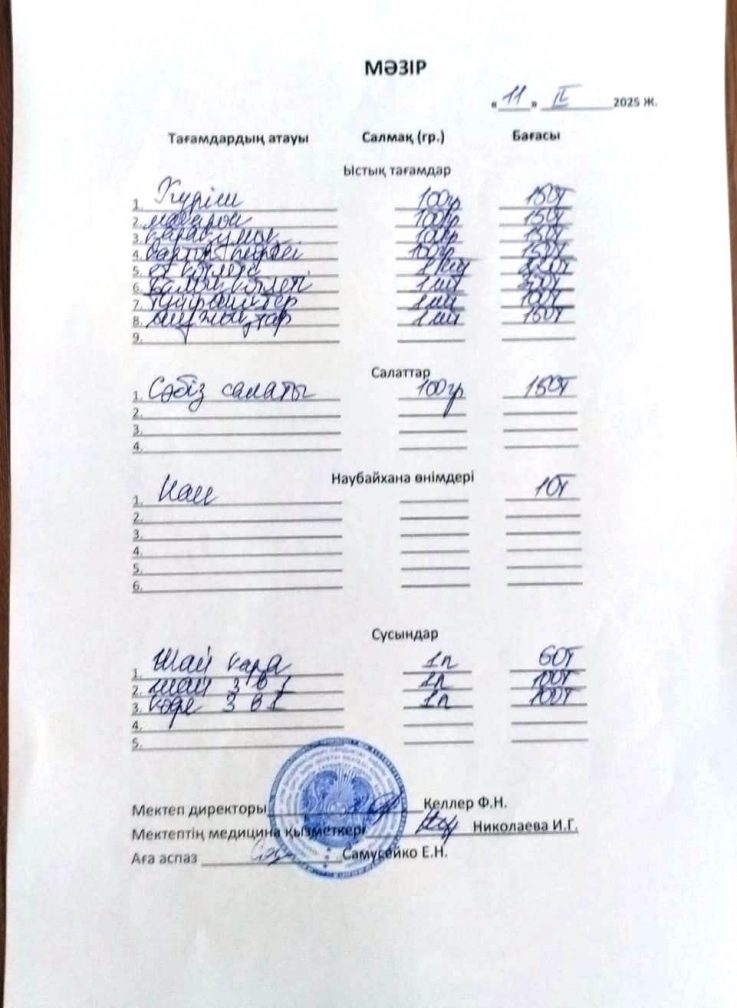 МӘЗІР
« 11 » IV 2025 ж.
Тағамдардың атауы Салмақ (гр.) Бағасы
Ыстық тағамдар
1. Күріш 100гр 150т
2. макарон 100гр 150т
3. қарақұмық 100гр 150т
4. картоп пюресі 100гр 150т
5. ет котлета 1 шт
6. балық котлеті 1 шт
7. 1 шт 100т
8. 1 шт 150т
9.
Салаттар
1. Сәбіз салаты 100гр 150т
2.
3.
4.
Наубайхана өнімдері
1. Нан 10т
2.
3.
4.
5.
6.
Сусындар
1. Шай қара 1п 60т
2. шай 3 в 1 1п 100т
3. кофе 3 в 1 1п 100т
4.
5.
Мектеп директоры Келлер Ф.Н.
Мектептің медицина қызметкері Николаева И.Г.
Аға аспаз Самусейко Е.Н.